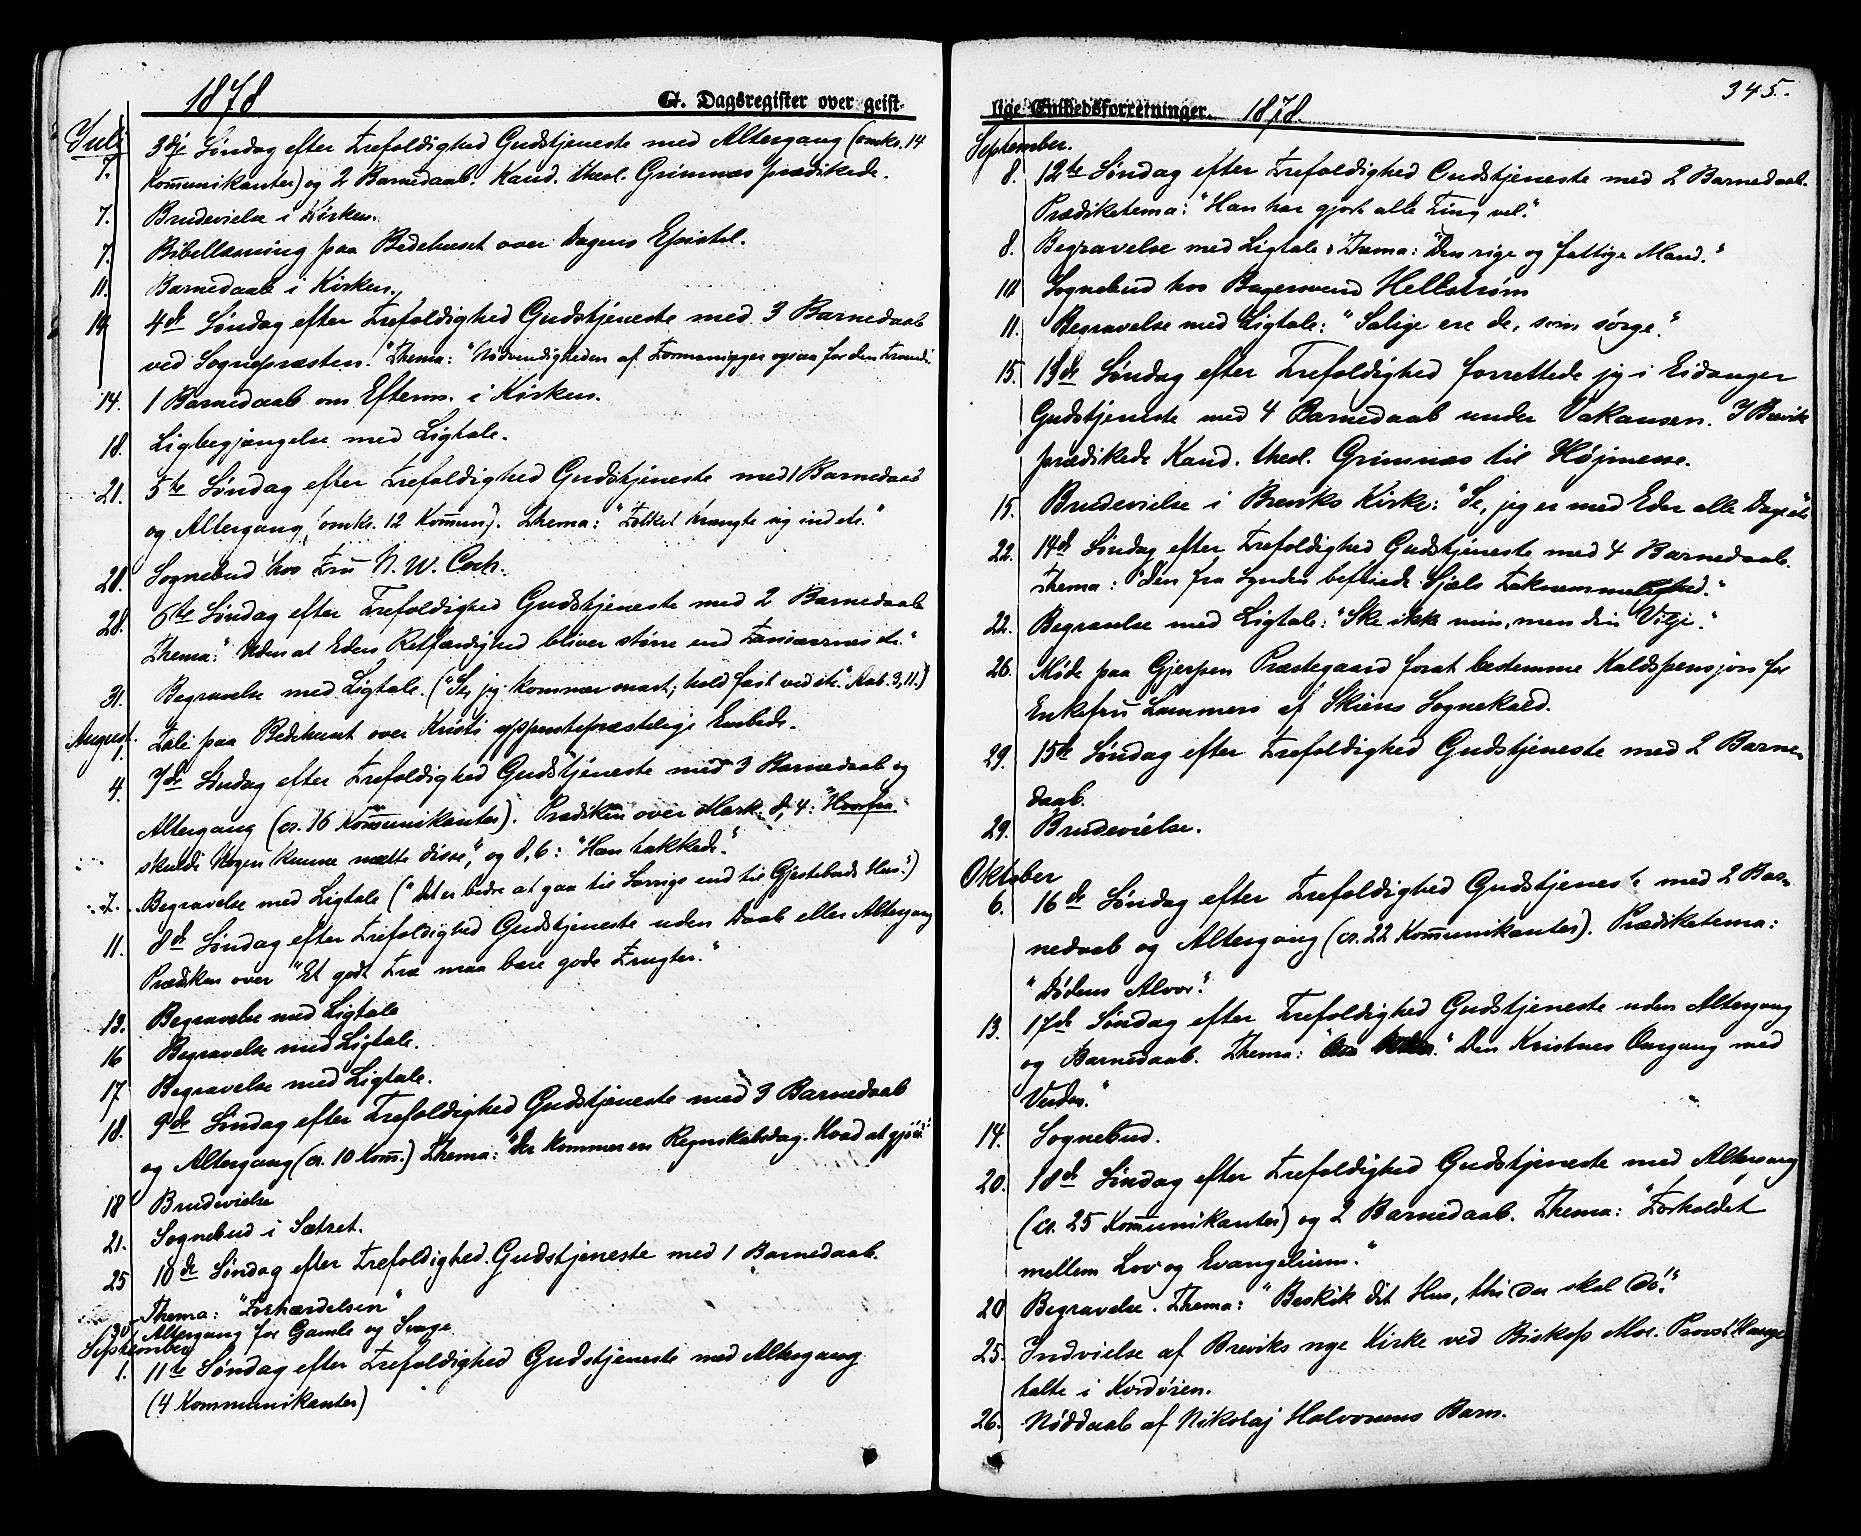 1878
G. Dagsregister over geist-
Juli
7. 3die Søndag efter Trefoldighed Gudstjeneste med Altergang (omkr. 14
Kommunikanter) og 2 Barnedaab. Kand. theol. Grimnæs prædikede.
7. Brudevielse i Kirken.
7. Bibellæsning paa Bedehuset over Dagens Epistel.
11. Barnedaab i Kirken.
14. 4de Søndag efter Trefoldighed Gudstjeneste med 3 Barnedaab
ved Sognepræsten. Thema: "Nødvendigheden af Formaninger ogsaa for den
14. 1 Barnedaab om Efterm. i Kirken.
18. Ligbegjængelse med Ligtale.
21. 5te Søndag efter Trefoldighed Gudstjeneste med 1 Barnedaab
og Altergang (omkr. 12 Kommun.). Thema: "Folket trængte sig ind etc."
28. Sognebud hos Fru N. W. Coch.
28. 6te Søndag efter Trefoldighed Gudstjeneste med 2 Barnedaab
Thema: "Uden at Eders Retfærdighed bliver større end Farisæernes etc."
31. Begravelse med Ligtale. ("Se, jeg kommer snart; hold fast ved etc." Aab. 3,11.)
August.
1. Tale paa Bedehuset over Kristi ypperstepræstelige Embede.
4. 7de Søndag efter Trefoldighed Gudstjeneste med 3 Barnedaab og
Altergang (cr. 16 Kommunikanter). Prædiken over Mark. 8, 4: "Hvorfra
skulde Nogen kunne mætte disse", og 8,6: "Han takkede."
7. Begravelse med Ligtale ("Det er bedre at gaa til Sorrigs end til Gjestebuds Hus.")
11. 8de Søndag efter Trefoldighed Gudstjeneste uden Daab eller Altergang
Prædiken over "Et godt Træ maa bære gode Frugter."
13. Begravelse med Ligtale
16 Begravelse med Ligtale.
17 Begravelse med Ligtale.
18. 9de Søndag efter Trefoldighed Gudstjeneste med 3 Barnedaab
og Altergang (cr. 10 Komm.) Thema: "Der kommer en Regnskabsdag. Hvad at gjøre?"
18 Brudevielse
21. Sognebud i Sætret.
25 10de Søndag efter Trefoldighed. Gudstjeneste med 1 Barnedaab.
Thema: "Forhærdelsen"
30 Altergang for Gamle og Svage
September
1. 11te Søndag efter Trefoldighed Gudstjeneste med Altergang
(4 Kommunikanter)
345.
lige Embedsforretninger. 1878.
September.
8. 12te Søndag efter Trefoldighed Gudstjeneste med 2 Barnedaab.
Prædiketema: "Han har gjort alle Ting vel."
8. Begravelse med Ligtale. Thema: "Den rige og fattige Mand."
10 Sognebud hos Bagersvend Hellstrøm
11. Begravelse med Ligtale: "Salige ere de, som sørge."
15. 13de Søndag efter Trefoldighed forrettede jeg i Eidanger
Gudstjeneste med 4 Barnedaab under Vakansen. I Brevik
prædikede Kand. theol. Grimnæs til Højmesse.
15. Brudevielse i Breviks Kirke: "Se, jeg er med Eder alle Dage etc"
22. 14de Søndag efter Trefoldighed Gudstjeneste med 4 Barnedaab.
Thema: "Den fra Synden befriede Sjæls Taknemmelighed."
22. Begravelse med Ligtale: "Ske ikke min, men din Vilje."
26. Møde paa Gjerpen Præstegaard forat bestemme Kaldspensjon for
Enkefru Lammers af Skiens Sognekald.
29. 15de Søndag efter Trefoldighed Gudstjeneste med 2 Barne-
daab.
29. Brudevielse.
Oktober
6. 16de Søndag efter Trefoldighed Gudstjeneste med 2 Bar-
nedaab og Altergang (cr. 22 Kommunikanter). Prædiketema:
"Dødens Alvor."
13. 17de Søndag efter Trefoldighed Gudstjeneste uden Altergang
og Barnedaab. Thema: "Den Kristnes Omgang med
Verden."
14. Sognebud.
20. 18de Søndag efter Trefoldighed Gudstjeneste med Altergang
(cr. 25 Kommunikanter) og 2 Barnedaab. Thema: "Forholdet
mellem Lov og Evangelium."
20 Begravelse. Thema: "Beskik dit Hus, thi du skal dø!"
25. Indvielse af Breviks nye Kirke ved Biskop Moe. Provst
talte i Kordøren.
26. Nøddaab af Nikolaj Halvorsens Barn.